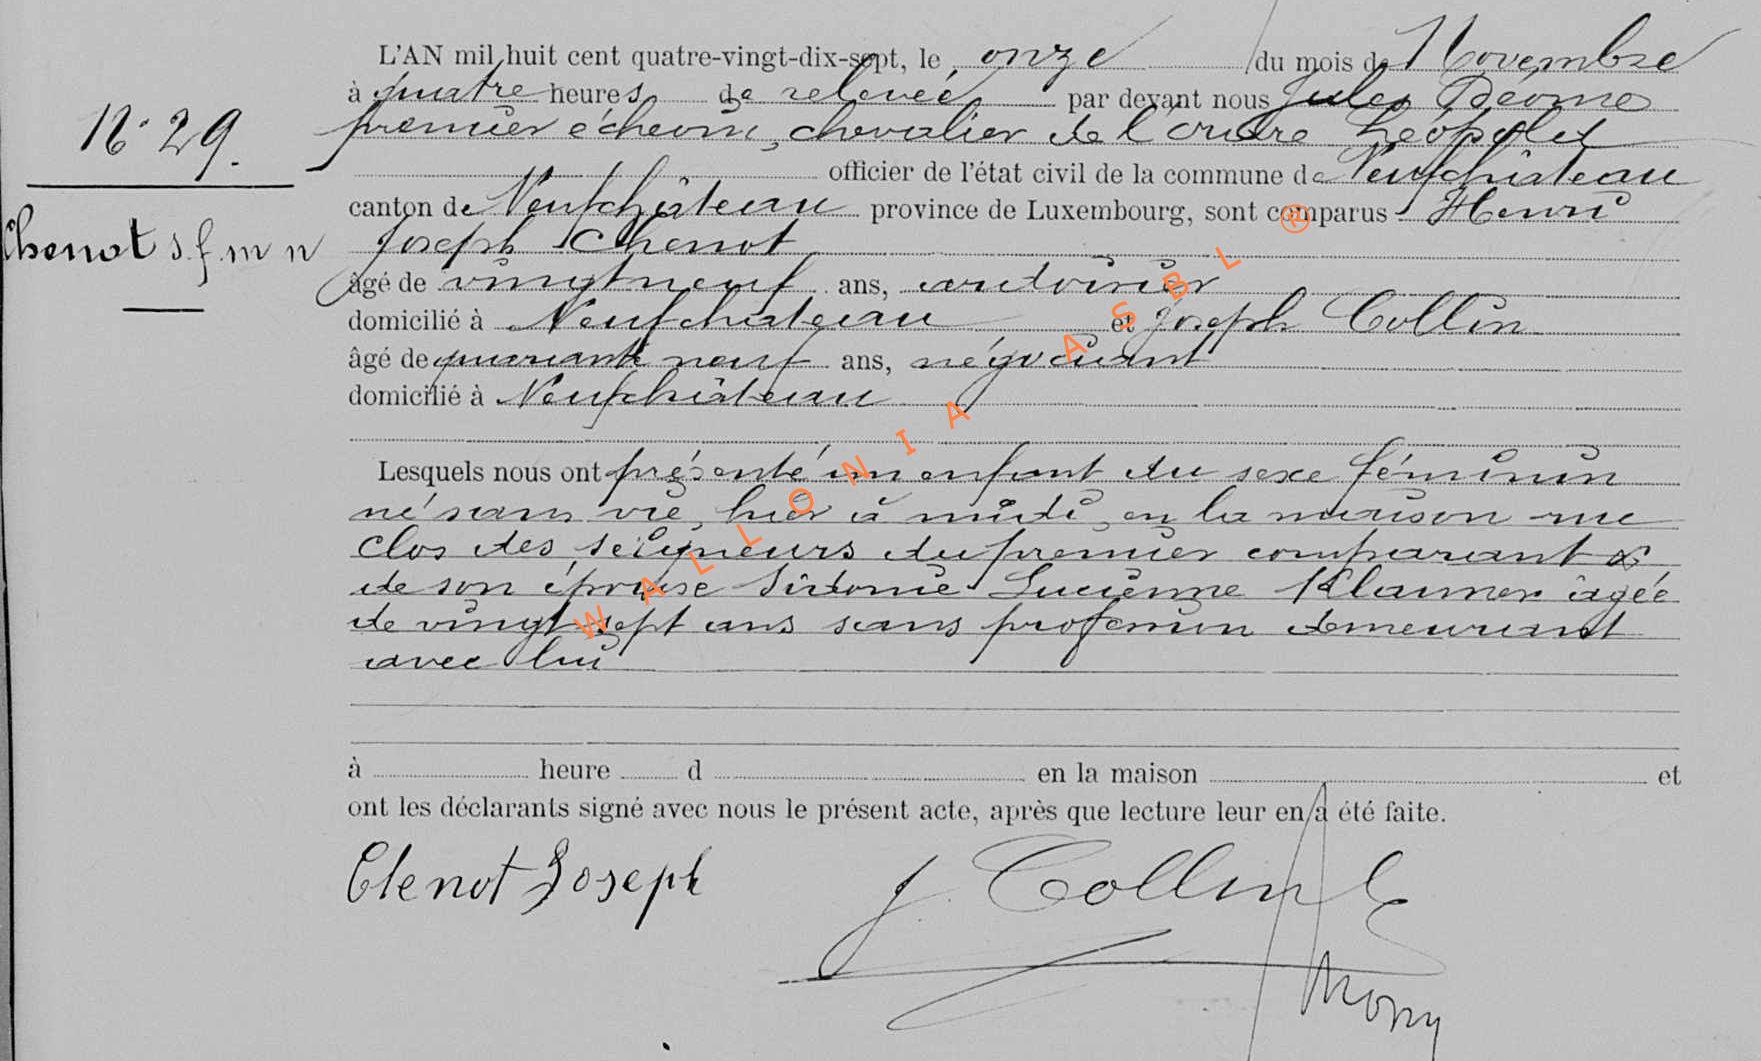 L'AN mil huit cent quatre-vingt-dix-sept, le onze du mois de Novembre
à quatre heures de relevée par devant nous Jules
N° 29.
premier échevin, chevalier de l'ordre Léopold
officier de l'état civil de la commune de Neufchâteau
canton de Neufchâteau province de Luxembourg, sont comparus Henri
Chenot s.f.m n
Joseph Chenot
âgé de vingt neuf ans, cordonier
domicilié à Neufchateau et Joseph Collin
âgé de quarante neuf ans, négociant
domicilié à Neufchâteau
Lesquels nous ont présenté un enfant du sexe féminin
né sans vie, hier à midi, en la maison rue
Clos des seigneurs du premier comparant &
de son épouse Sidonie Lucienne âgée
de vingt sept ans sans profession demeurant
avec lui
à heure d en la maison et
ont les déclarants signé avec nous le présent acte, après que lecture leur en a été faite.
Chenot Joseph
J. Collin
WALLONIA ASBL ®